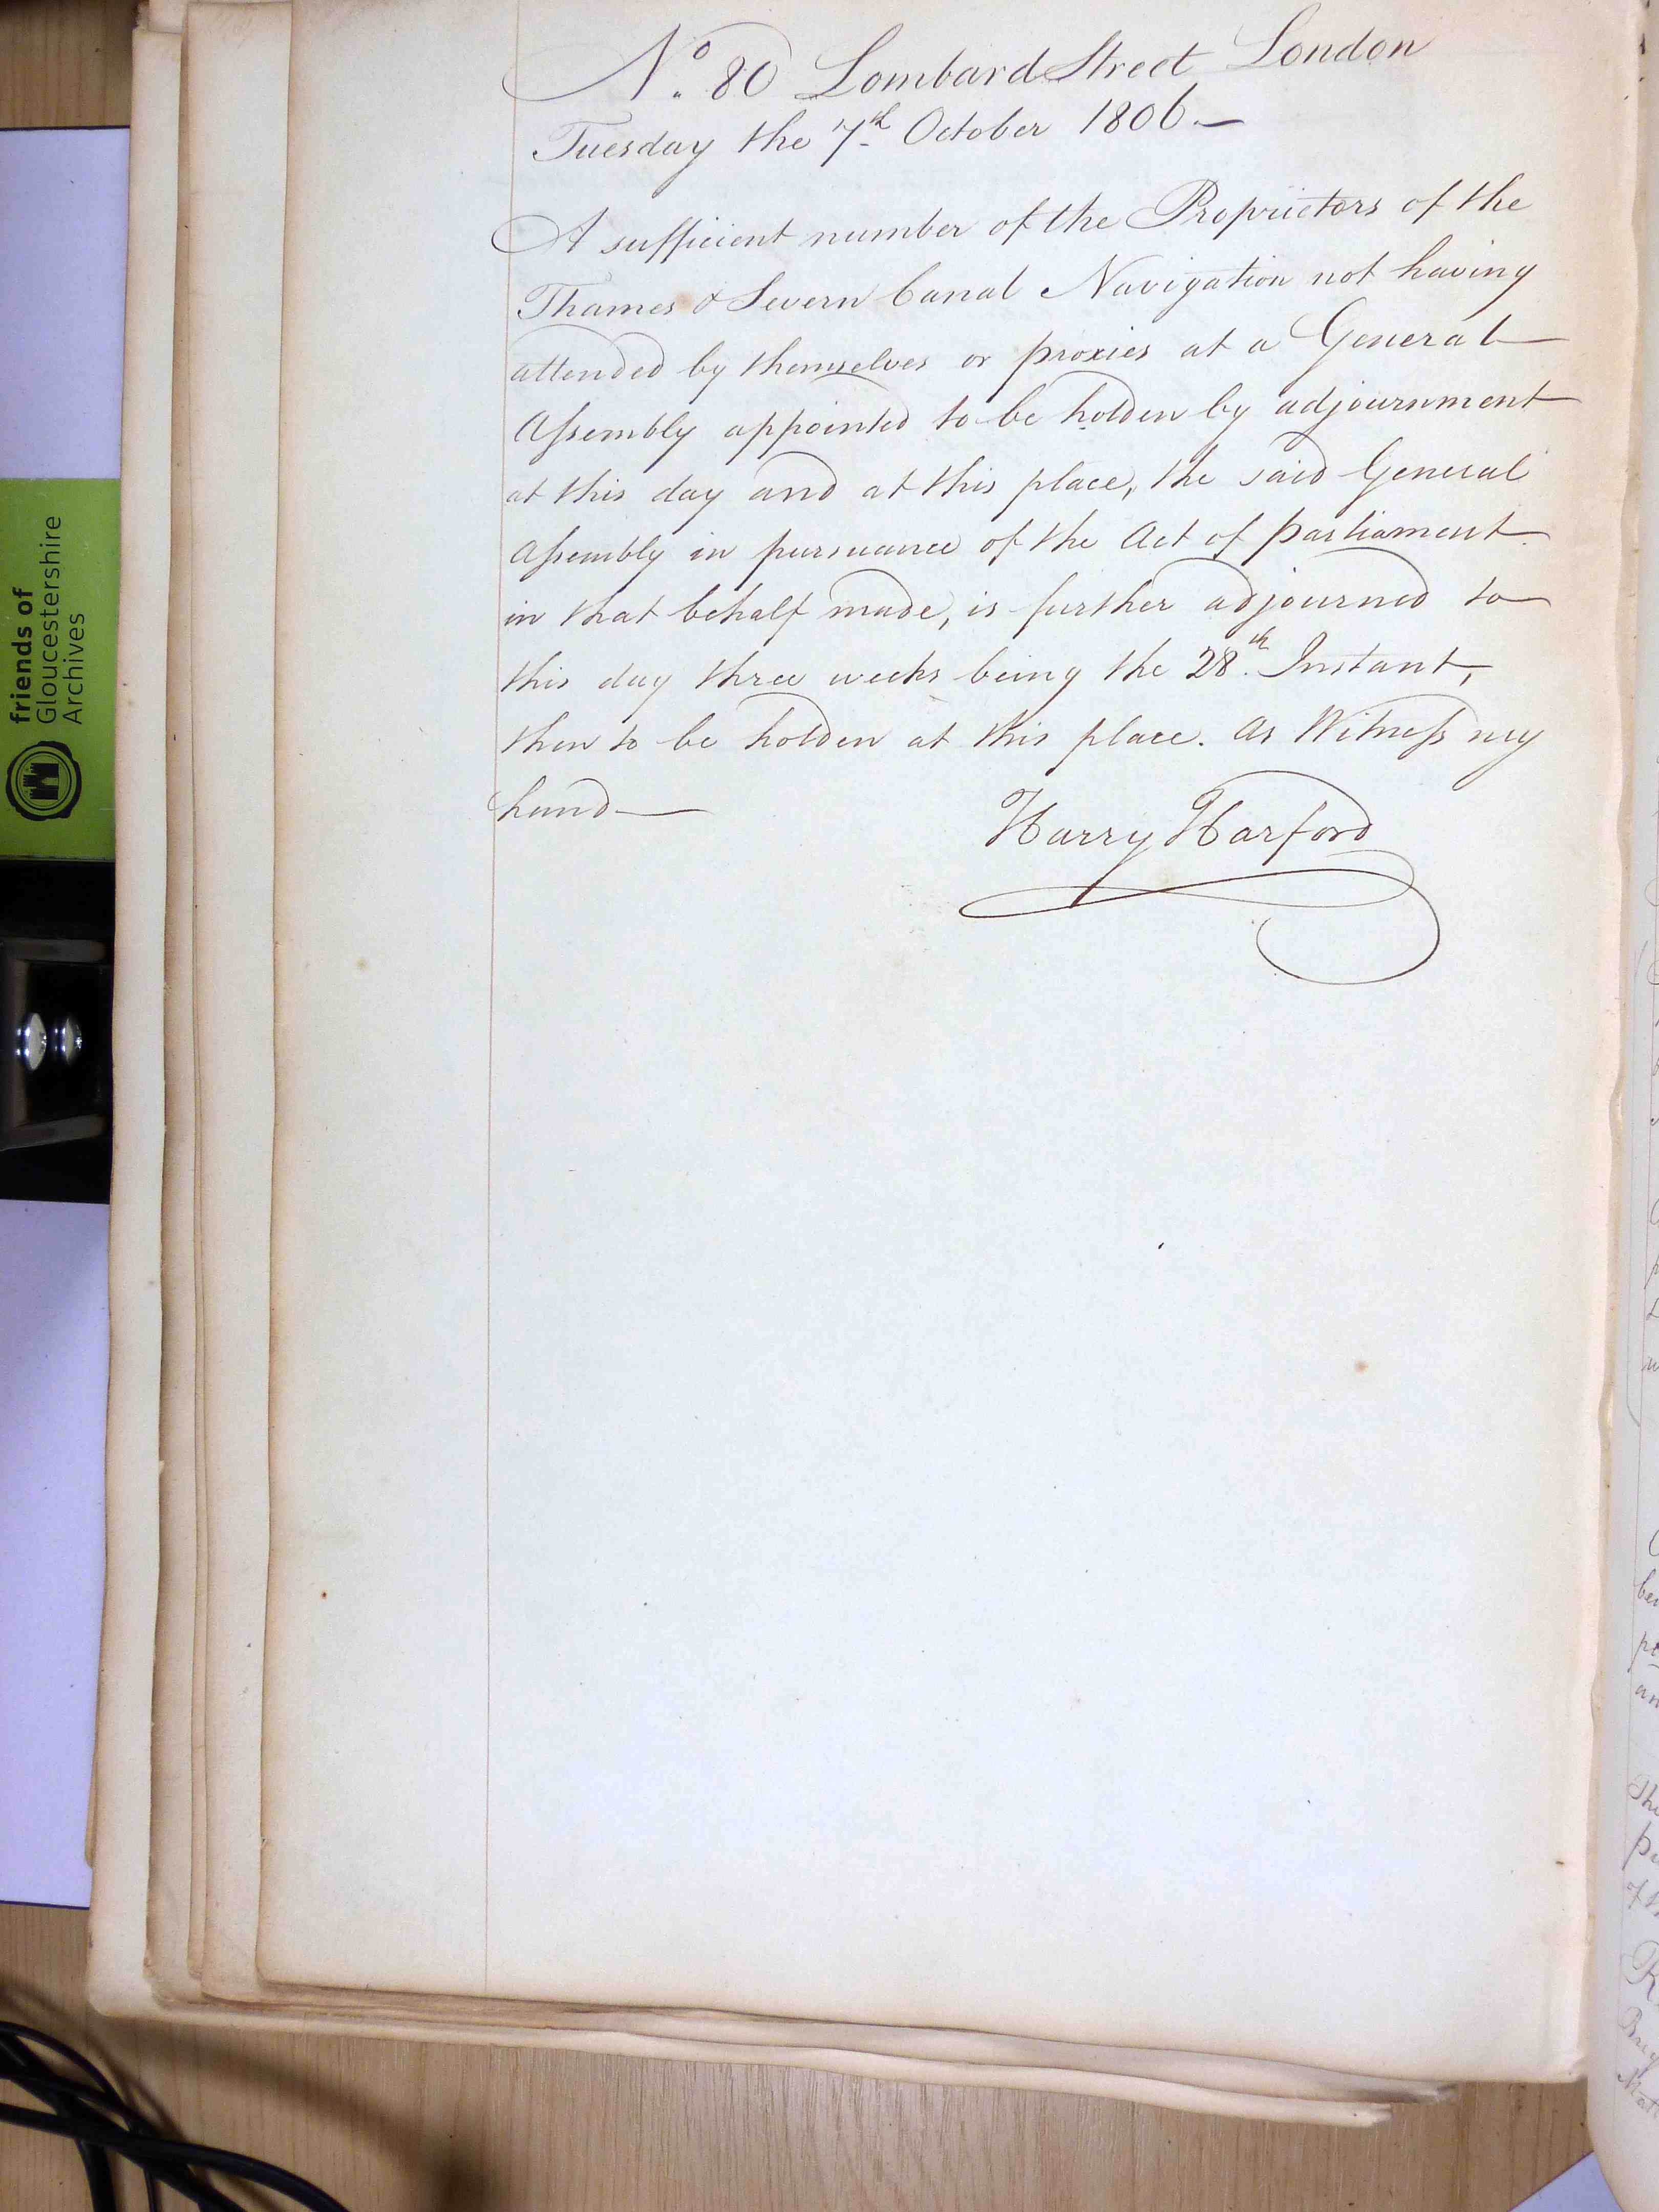 No. 80 Lombard Street London
Tuesday the 7th October 1806.—
A sufficient number of the Proprietors of the
Thames & Severn Canal Navigation not having
attended by themselves or proxies at a General
Assembly appointed to be holden by adjournment
at this day and at this place, the said General
Assembly in pursuance of the Act of parliament
in that behalf made, is further adjourned to
this day three weeks being the 28th. Instant,
then to be holden at this place. As Witness my
hand—
Harry Harford
friends of
Gloucestershire
Archives